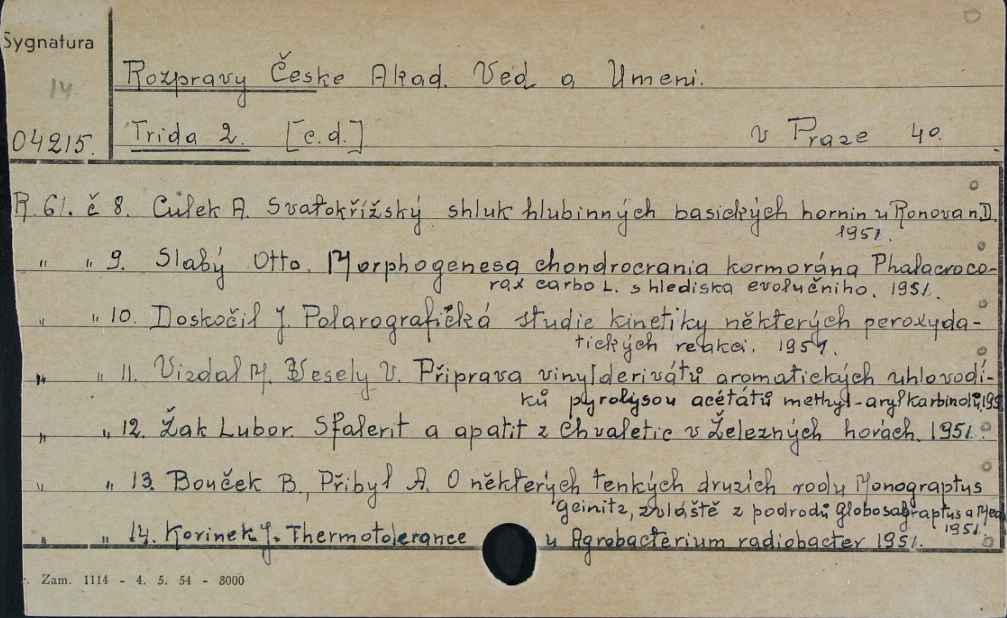 Sygnatura
14
04215.
Rozpravy České Akad. Ved a Umeni.
Trida 2. [c.d.] v Praze 40.
R. 61. č 8. Culek A. Svatokřížský shluk hlubinných basických hornin u Ronova n D.
1951.
" " 9. Slabý Otto. Morphogenesa chondrocrania kormorána Phalacroco-
rax carbo L. s hlediska evolučniho. 1951.
" " 10. Doskočil J. Polarografická studie kinetiky některých peroxyda-
tických reakci. 1951.
" " 11. Vizdal M. Vesely V. Připrava vinylderivátů aromatických uhlovodí-
ků pyrolýsou acétátů methyl-arylkarbinolů, 195
" " 12. Žak Lubor. Sfalerit a apatit z Chvaletic v Železných horách. 1951.
" " 13. Bouček B., Přibyl A. O některých tenkých druzích rodu Monograptus
Geinitz, zvláště z podrodů Globosograptus a Med
1951.
" " 14. Korinek J. Thermotolerance u Agrobacterium radiobacter 1951.
Zam. 1114 - 4. 5. 54 - 8000